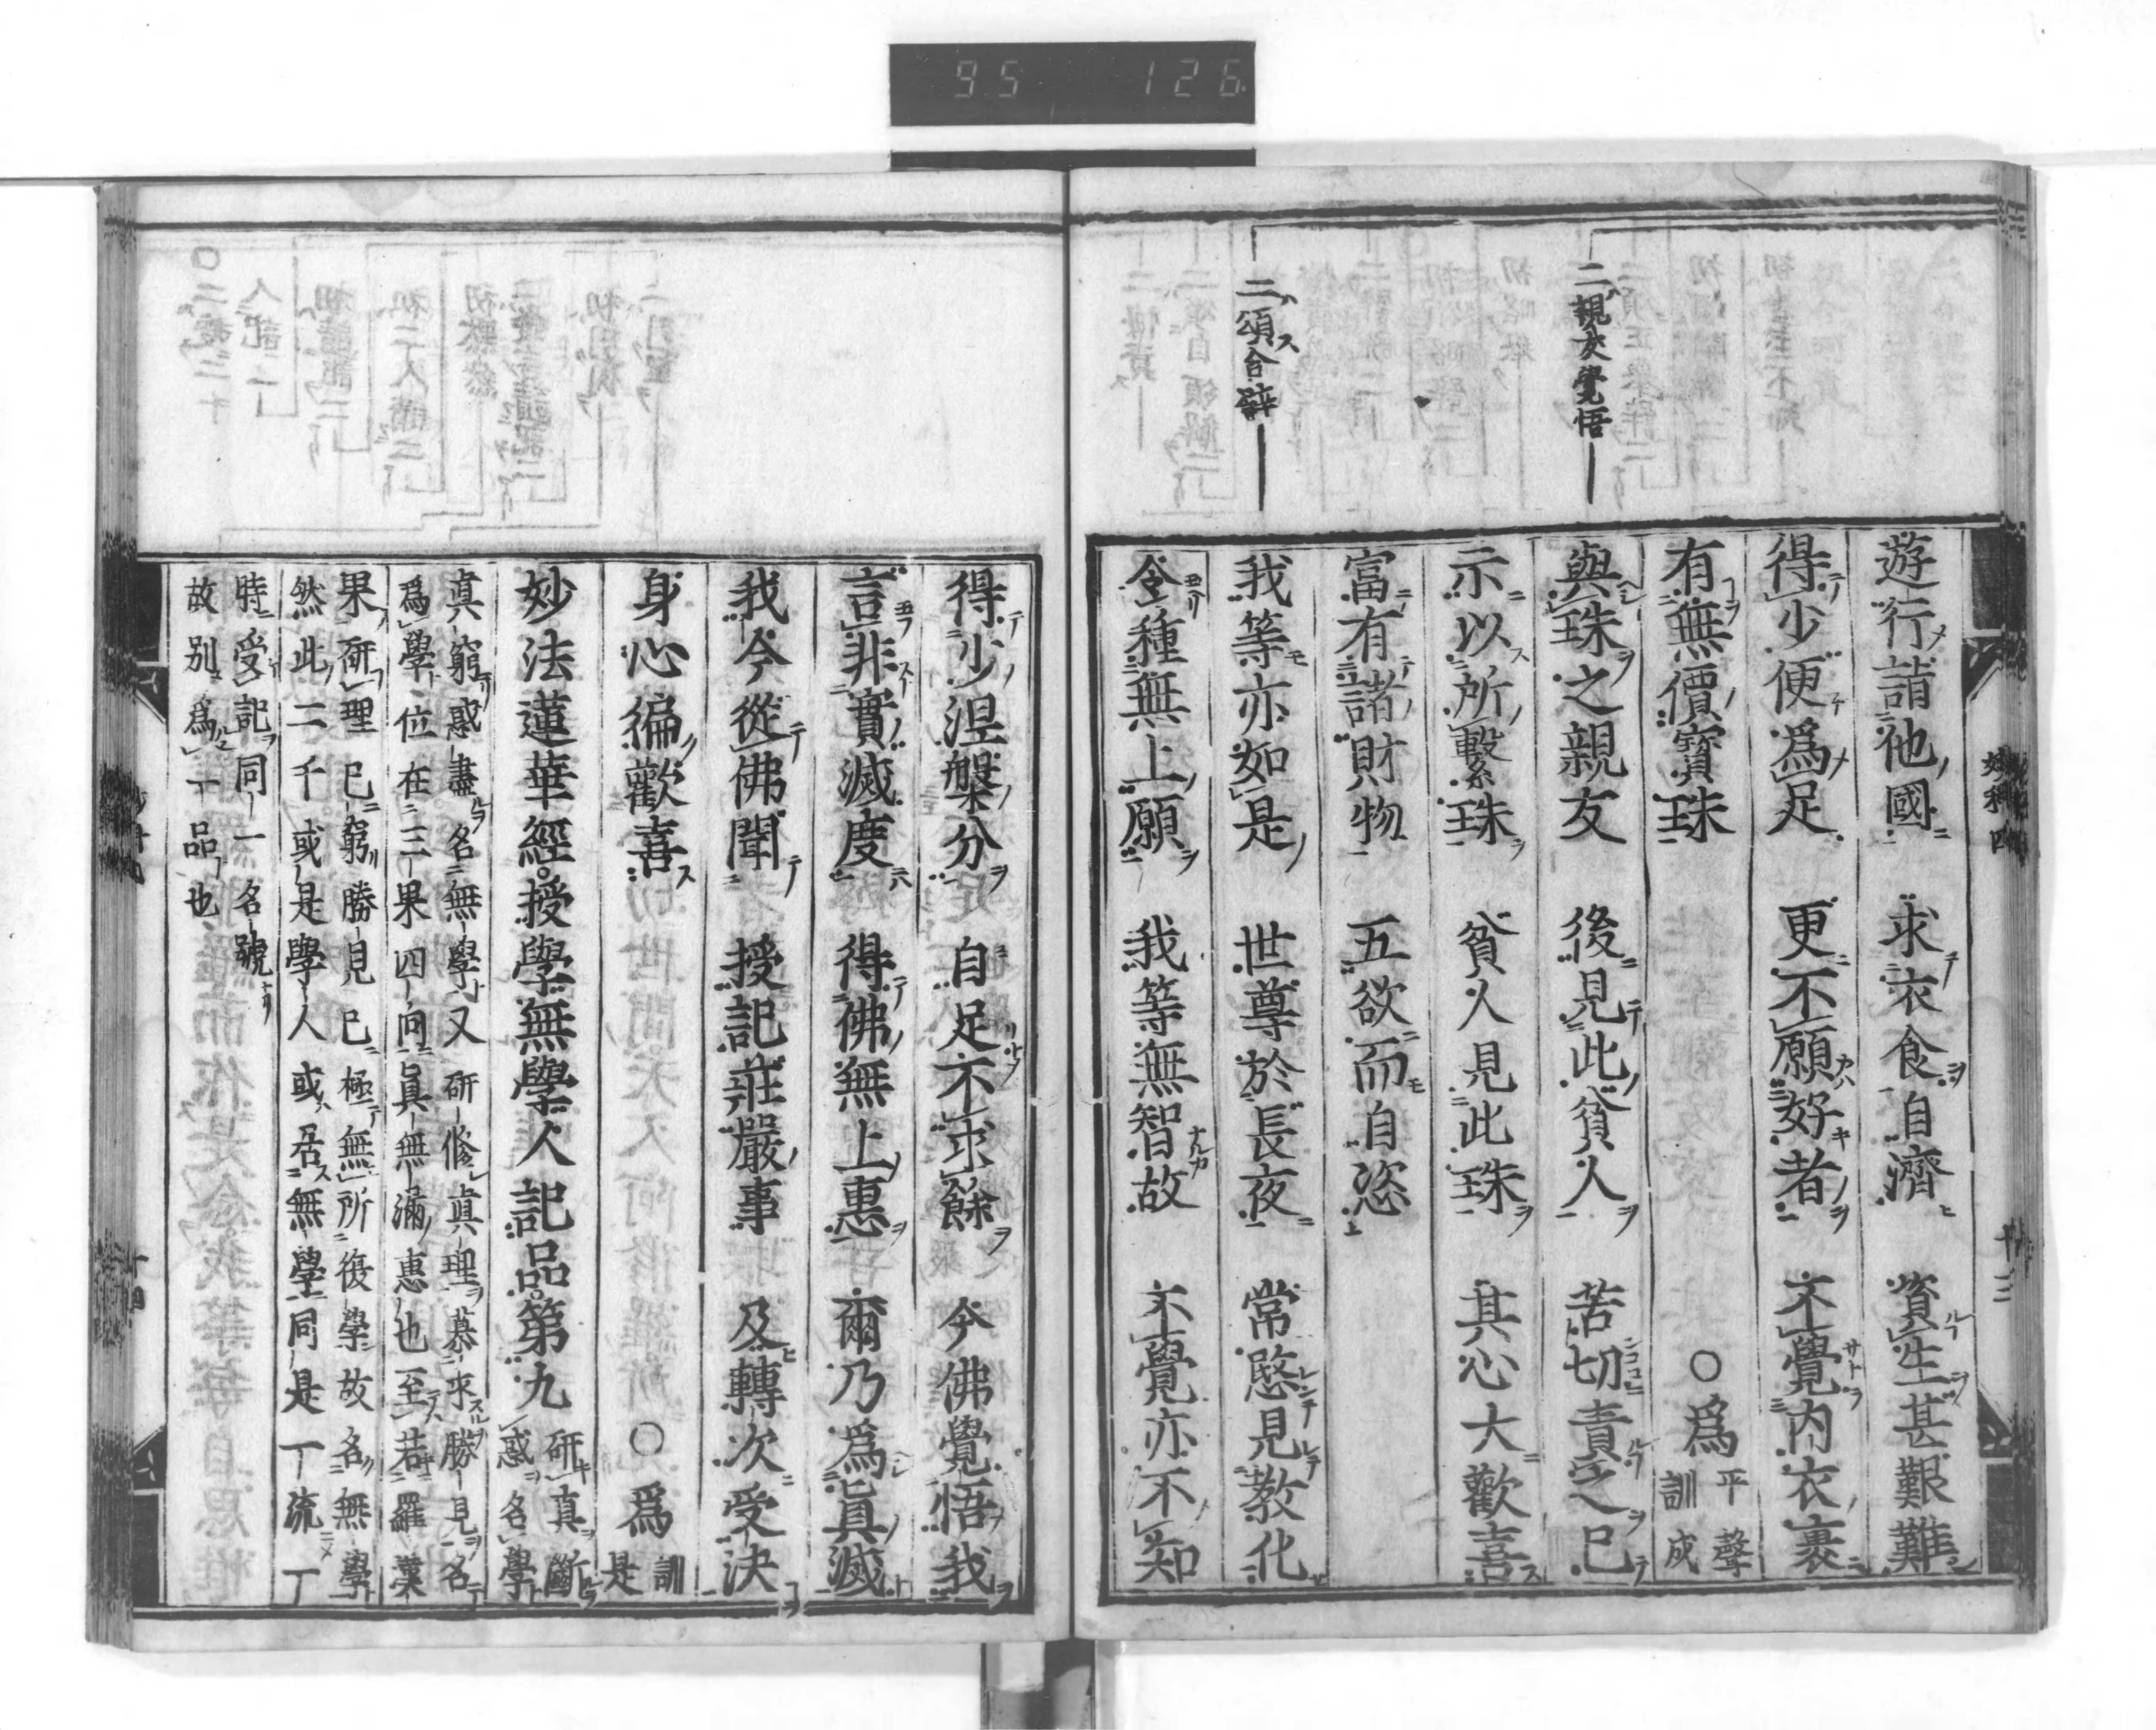 95 126
二親友覺悟
二頌合譬
遊行詣他國 求衣食自濟 資生甚艱難
得少便爲足 更不願好者 不覺內衣裏
有無價寶珠 ○爲平聲訓成
與珠之親友 後見此貧人 苦切責之已
示以所繫珠 貧人見此珠 其心大歡喜
富有諸財物 五欲而自恣
我等亦如是 世尊於長夜 常愍見教化
令種無上願 我等無智故 不覺亦不知
得少涅槃分 自足不求餘 今佛覺悟我
言非實滅度 得佛無上惠 爾乃爲眞滅
我今從佛聞 授記莊嚴事 及轉次受決
身心徧歡喜 ○爲訓是
妙法蓮華經授學無學人記品第九 研眞斷惑名學
眞窮惑盡名無學又研修眞理慕求勝見名
爲學位在三果四向眞無漏惠也至若羅漢
果研理已窮勝見已極無所復學故名無學
然此二千或是學人或居無學同是一流一
時受記同一名號
故别爲一品也